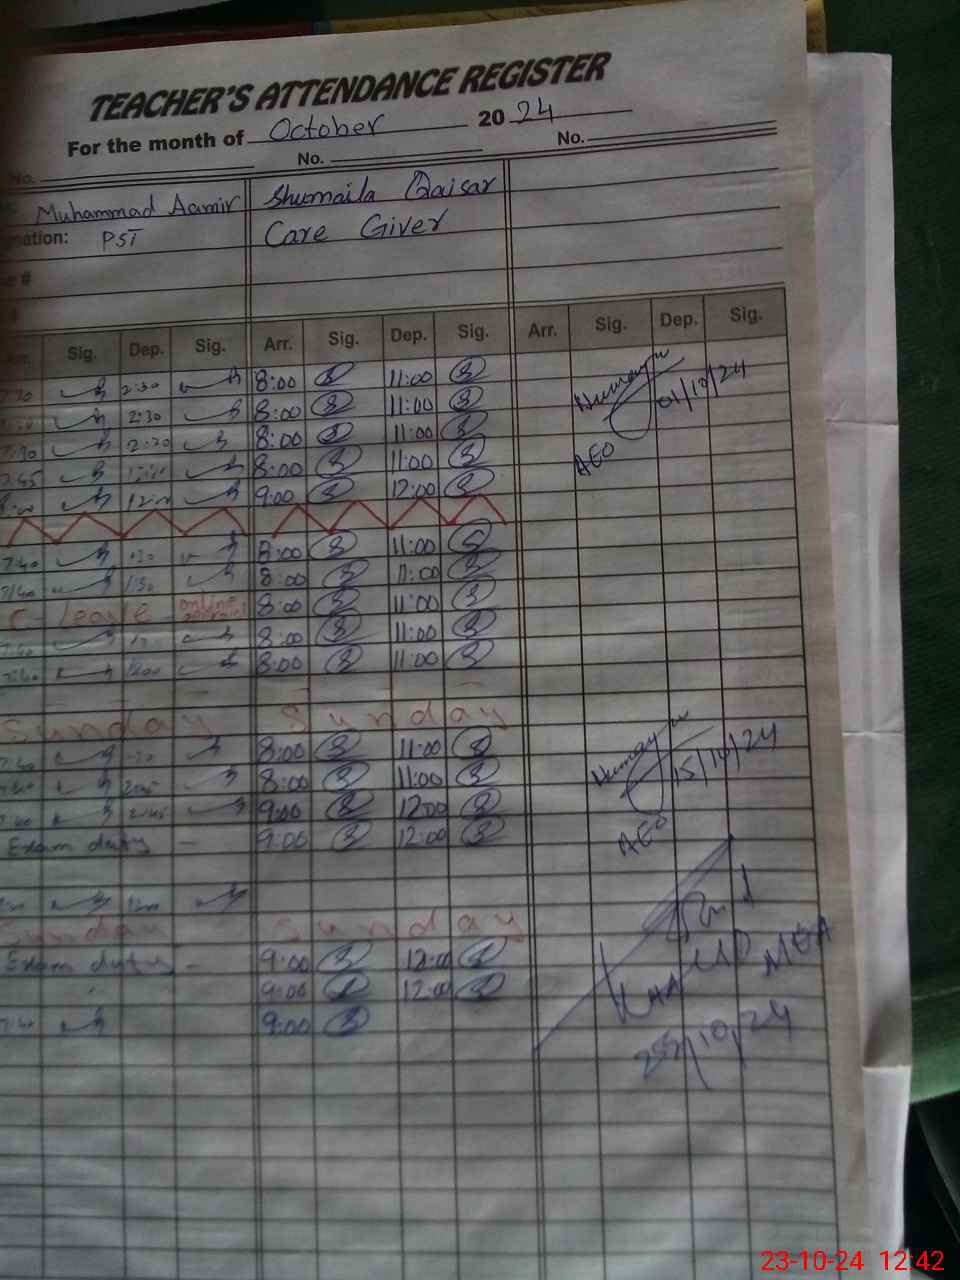 TEACHER'S ATTENDANCE REGISTER
For the month of October 2024
No. No. No.
Muhammad Aamir Shumaila Qaisar
nation: PST Care Giver
Arr. Sig. Dep. Sig. Arr. Sig. Dep. Sig. Arr. Sig. Dep. Sig.
7:30 2:30 8:00 11:00 Humayun 01/10/24
2:30 8:00 11:00
7:30 2:30 8:00 11:00 AEO
7:45 8:00 11:00
12:00 9:00 12:00
7:40 8:00 11:00
7:40 130 8:00 11:00
C-leave online 8:00 11:00
7:40 8:00 11:00
7:40 1200 8:00 11:00
Sunday Sunday
7:40 8:00 11:00 Humayun 15/10/24
7:40 2:45 8:00 11:00
7:40 2:45 9:00 12:00
Exam duty - 9:00 12:00 AEO
Sunday Sunday
Exam duty - 9:00 12:00 MEA
9:00 12:00
7:40 9:00
/10/24
23-10-24 12:42